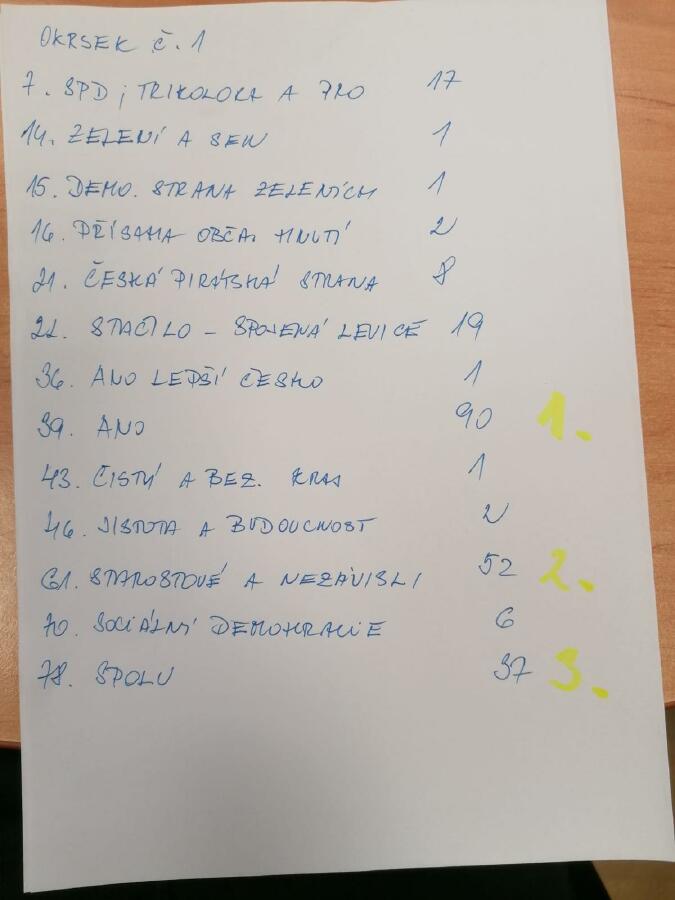 OKRSEK č. 1
7. SPD, TRIKOLORA A PRO 17
14. ZELENÍ A SEN 1
15. DEMO. STRANA ZELENÝCH 1
16. PŘÍSAHA OBČA. HNUTÍ 2
21. ČESKÁ PIRÁTSKÁ STRANA 8
22. STAČILO - SPOJENÁ LEVICE 19
36. ANO LEPŠÍ ČESKO 1
39. ANO 90 1.
43. ČISTÝ A BEZ. KRAJ 1
46. JISTOTA A BUDOUCNOST 2
61. STAROSTOVÉ A NEZÁVISLÍ 52 2.
70. SOCIÁLNÍ DEMOKRACIE 6
78. SPOLU 37 3.